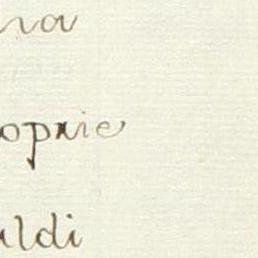 na
oprie
aldi